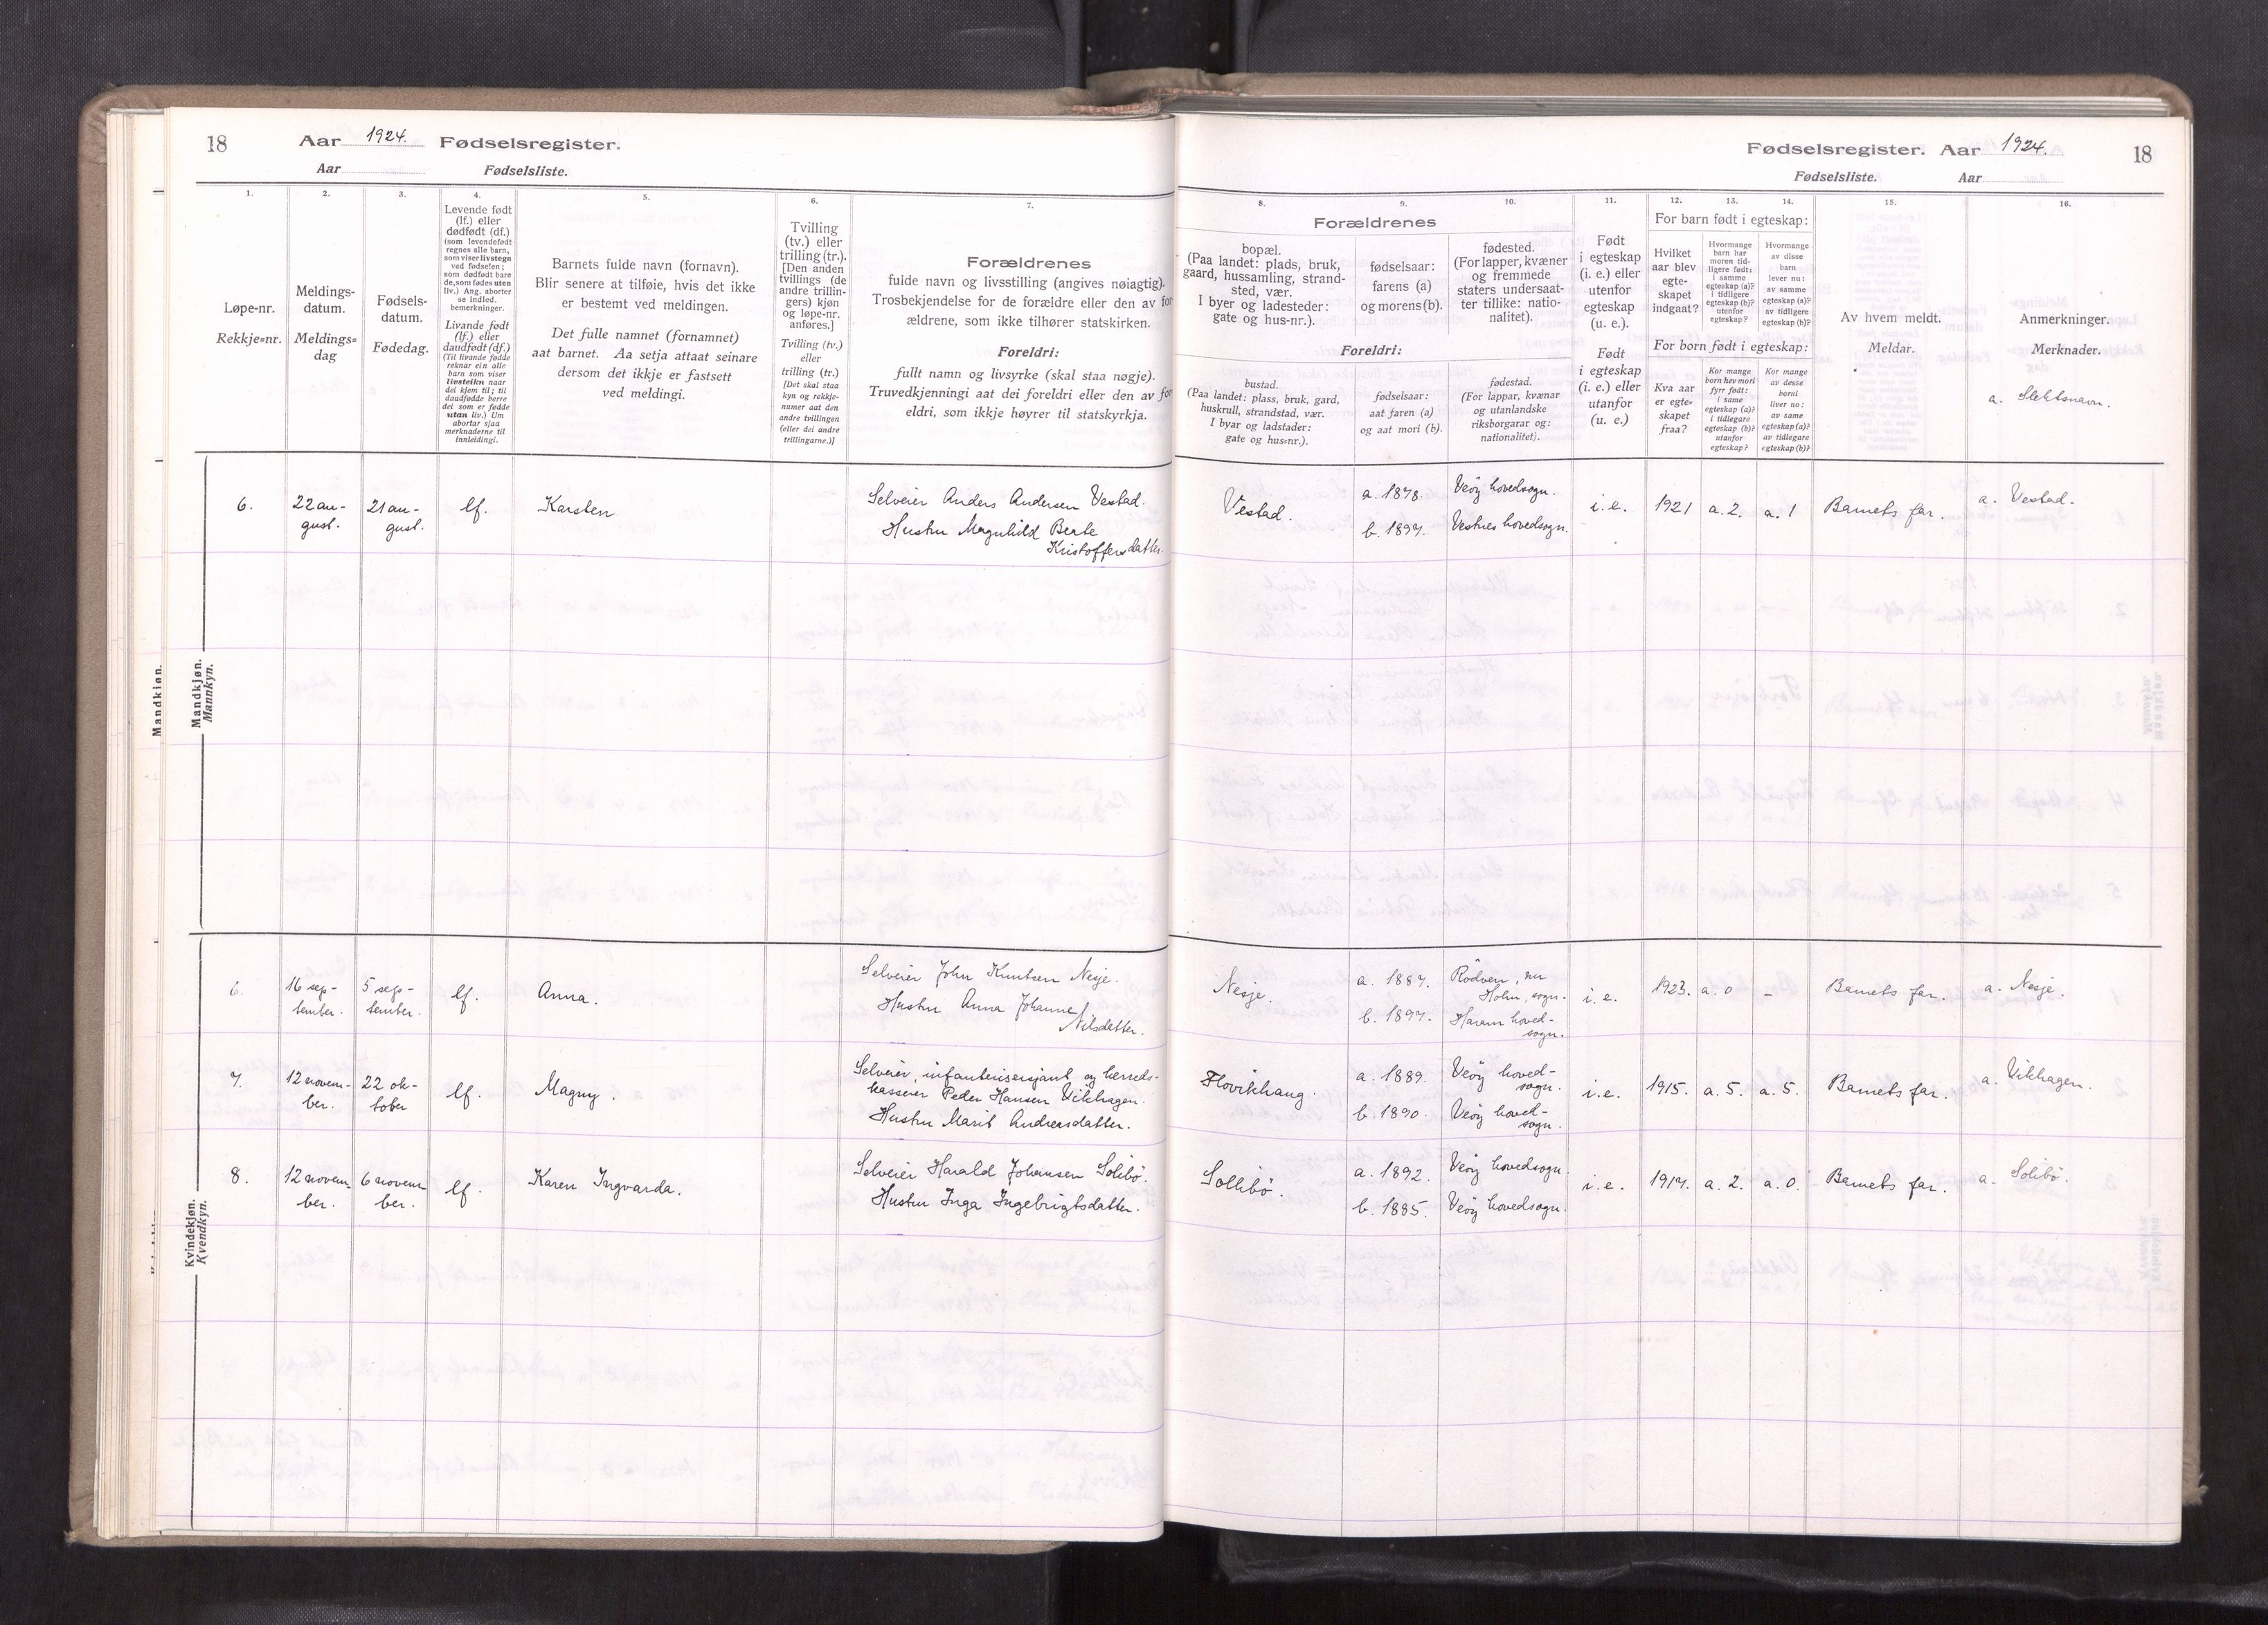 18
Aar 1924. Fødselsregister.
Aar Fødselsliste.
1.
Løpe-nr.
Rekkje=nr.
2.
Meldings-
datum.
Meldings=
dag
3.
Fødsels-
datum.
Fødedag.
4.
Levende født
(lf.) eller
dødfødt (df.)
(som levendefødt
regnes alle barn,
som viser livstegn
ved fødselen;
som dødfødt bare
de, som fødes uten
liv.) Ang. aborter
se indled.
bemerkninger.
Livande født
(lf.) eller
daudfødt (df.)
(Til livande fødde
reknar ein alle
barn som viser
livsteikn naar
dei kjem til; til
daudfødde berre
dei som er fødde
utan liv.) Um
abortar sjaa
merknaderne til
innleidingi.
5.
Barnets fulde navn (fornavn).
Blir senere at tilføie, hvis det ikke
er bestemt ved meldingen.
Det fulle namnet (fornamnet)
aat barnet. Aa setja attaat seinare
dersom det ikkje er fastsett
ved meldingi.
6.
Tvilling
(tv.) eller
trilling (tr.).
[Den anden
tvillings (de
andre trillin-
gers) kjøn
og løpe-nr.
anføres.]
Tvilling (tv.)
eller
trilling (tr.)
[Det skal staa
kyn og rekkje-
numer aat den
andre tvillingen
(eller dei andre
trillingarne.)]
7.
Forældrenes
fulde navn og livsstilling (angives nøiagtig).
Trosbekjendelse for de forældre eller den av for-
ældrene, som ikke tilhører statskirken.
Foreldri:
fullt namn og livsyrke (skal staa nøgje).
Truvedkjenningi aat dei foreldri eller den av for-
eldri, som ikkje høyrer til statskyrkja.
Mandkjøn.
Mandkjøn.
Mannkyn.
6.
22 au-
gust.
21 au-
gust.
lf.
Karsten
Selveier Anders Andersen Vestad.
Hustru Magnhild Beate
Kristoffersdatter.
Kvindekjøn.
Kvendkyn.
6.
16 sep-
tember.
5 sep-
tember.
lf.
Anna.
Selveier John Knutsen Nesje.
Hustru Anna Johanne
Nilsdatter.
7.
12 novem-
ber.
22 ok-
tober
lf.
Magny.
Selveier, infanterisersjant og herreds-
kasserer Peder Hansen Vikhagen.
Hustru Marit Andreasdatter.
8.
12 novem-
ber.
6 novem-
ber.
lf.
Karen Ingvarda.
Selveier Harald Johansen Solibö.
Hustru Inga Ingebrigtsdatter.
Fødselsregister. Aar 1924.
18
Fødselsliste. Aar
8.
Forældrenes
bopæl.
(Paa landet: plads, bruk,
gaard, hussamling, strand-
sted, vær.
I byer og ladesteder:
gate og hus-nr.).
Foreldri:
bustad.
(Paa landet: plass, bruk, gard,
huskrull, strandstad, vær.
I byar og ladstader:
gate og hus=nr.).
9.
fødselsaar:
farens (a)
og morens (b).
fødselsaar:
aat faren (a)
og aat mori (b).
10.
fødested.
(For lapper, kvæner
og fremmede
staters undersaat-
ter tillike: natio-
nalitet).
fødestad.
(For lappar, kvænar
og utanlandske
riksborgarar og:
nationalitet).
11.
Født
i egteskap
(i. e.) eller
utenfor
egteskap
(u. e.).
Født
i egteskap
(i. e.) eller
utanfor
(u. e.)
12.
For barn født i egteskap:
Hvilket
aar blev
egte-
skapet
indgaat?
For born født i egteskap:
Kva aar
er egte-
skapet
fraa?
13.
Hvormange
barn har
moren tid-
ligere født:
i samme
egteskap (a)?
i tidligere
egteskap (b)?
utenfor
egteskap?
Kor mange
born hev mori
fyrr født:
i same
egteskap (a)?
i tidlegare
egteskap (b)?
utanfor
egteskap?
14.
Hvormange
av disse
barn
lever nu:
av samme
egteskap (a)?
av tidligere
egteskap (b)?
Kor mange
av desse
borni
liver no:
av same
egteskap (a)?
av tidlegare
egteskap (b)?
15.
Av hvem meldt.
Meldar.
16.
Anmerkninger.
Merknader.
a. Slektsnavn.
Vestad.
a. 1878.
b. 1897.
Veöy hovedsogn.
Vestnes hovedsogn.
i. e.
1921
a. 2.
a. 1
Barnets far.
a. Vestad.
Nesje.
a. 1887.
b. 1897.
Rödven, nu
Holm, sogn.
Haram hoved-
sogn.
i. e.
1923.
a. 0
-
Barnets far.
a. Nesje.
Flovikhaug.
a. 1889.
b. 1890.
Veöy hoved-
sogn.
Veöy hoved-
sogn.
i. e.
1915.
a. 5.
a. 5.
Barnets far.
a. Vikhagen.
Sollibö.
a. 1892.
b. 1885.
Veöy hovedsogn.
Veöy hovedsogn.
i. e.
1917.
a. 2.
a. 0.
Barnets far.
a. Solibö.